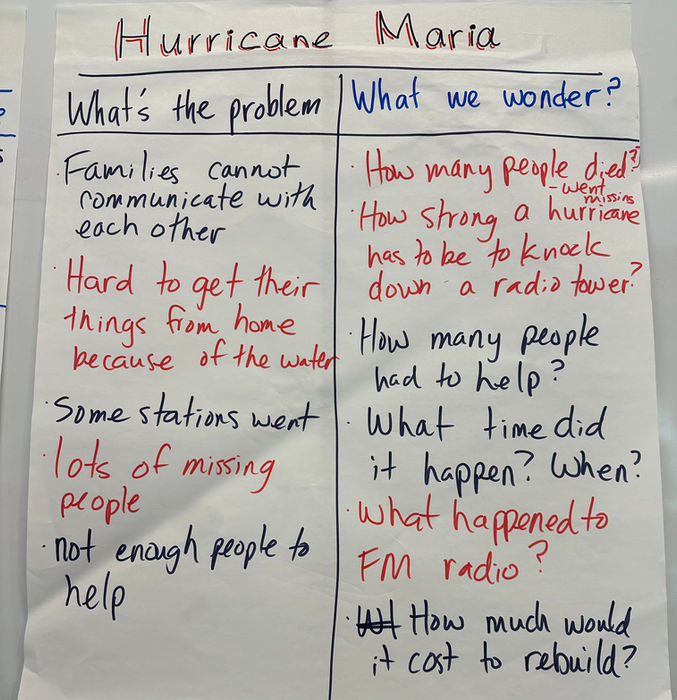 Hurricane Maria
What's the problem
· Families cannot
communicate with
each other
· Hard to get their
things from home
because of the water
· Some stations went
· lots of missing
people
· not enough people to
help
What we wonder?
· How many people died?
- went missing
· How strong a hurricane
has to be to knock
down a radio tower?
· How many people
had to help?
· What time did
it happen? When?
· What happened to
FM radio?
· How much would
it cost to rebuild?